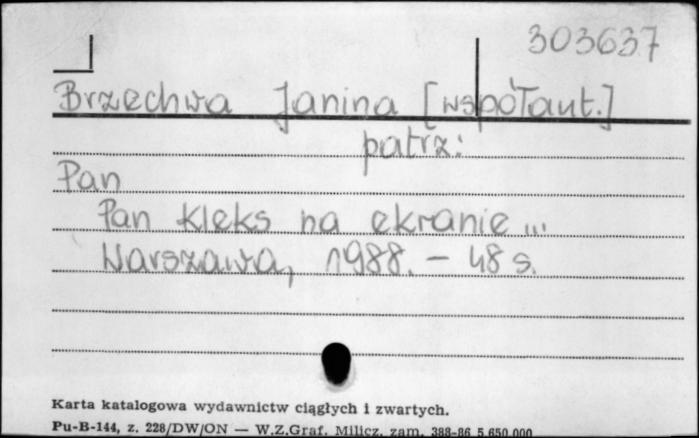 303637
Brzechwa Janina [współaut.]
patrz:
Pan
Pan Kleks na ekranie ...
Warszawa, 1988. – 48 s.
Karta katalogowa wydawnictw ciągłych i zwartych.
Pu-B-144, z. 228/DW/ON — W.Z.Graf. Milicz, zam. 388-86 5.650.000